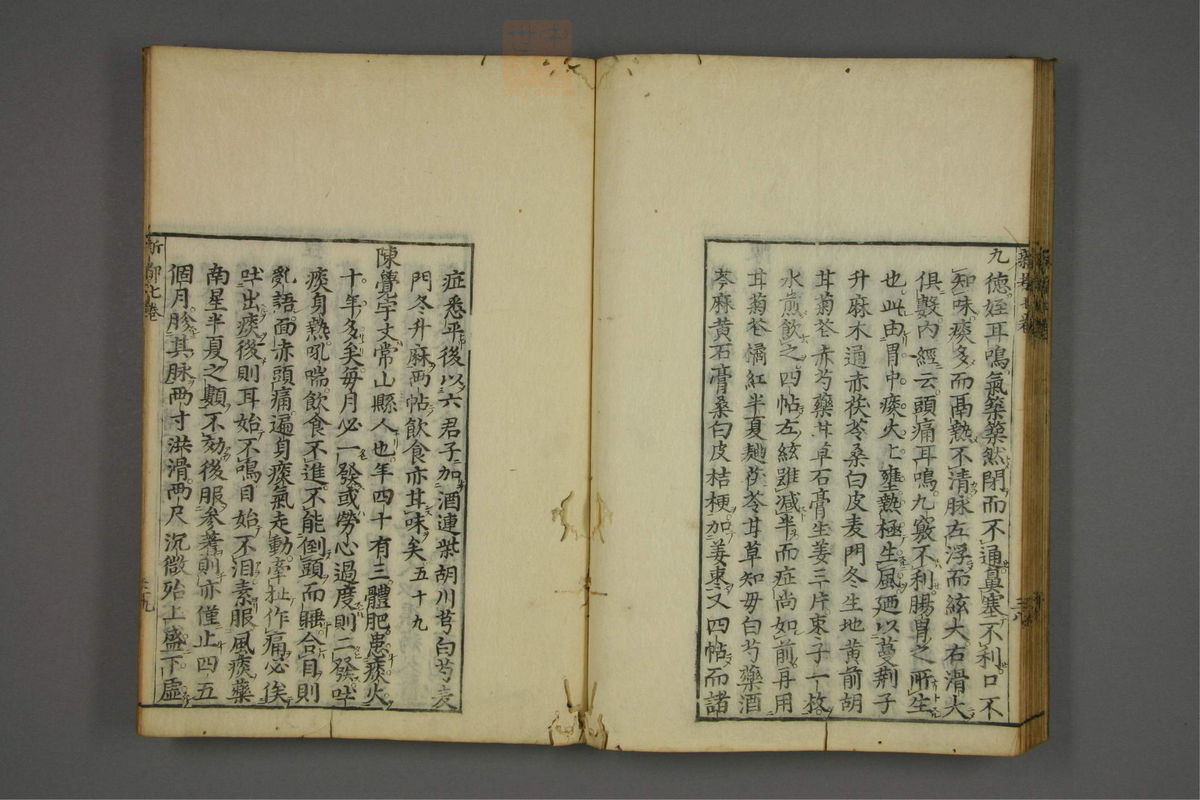 九德姪耳鳴氣築築然閉而不通鼻塞不利口不
知味痰多而鬲熱不清脉左浮而絃大右滑大
俱數內經云頭痛耳鳴九竅不利腸胃之所生
也此由胃中痰火上壅熱極生風廼以蔓荆子
升麻木通赤茯苓桑白皮麦門冬生地黄前胡
甘菊花赤芍藥甘草石膏生姜三片枣子一枚
水煎飲之四帖左絃雖减半而症尚如前再用
甘菊花橘紅半夏麯茯苓甘草知毋白芍藥酒
芩麻黄石膏桑白皮桔梗加姜枣又四帖而諸
症悉平後以六君子加酒連柴胡川芎白芍麦
門冬升麻兩帖飲食亦甘味矣五十九
陳覺宇丈常山縣人也年四十有三體肥患痰火
十年多矣每月必一發或勞心過度則二發咗
痰身熱吼喘飲食不進不能倒頭而睡合目則
乱語面赤頭痛遍身痰氣走動牽扯作痛必俟
吐出痰後則耳始不鳴目始不泪素服風痰藥
南星半夏之類不効後服参蓍則亦僅止四五
個月胗其脉兩寸洪滑兩尺沉微殆上盛下虛